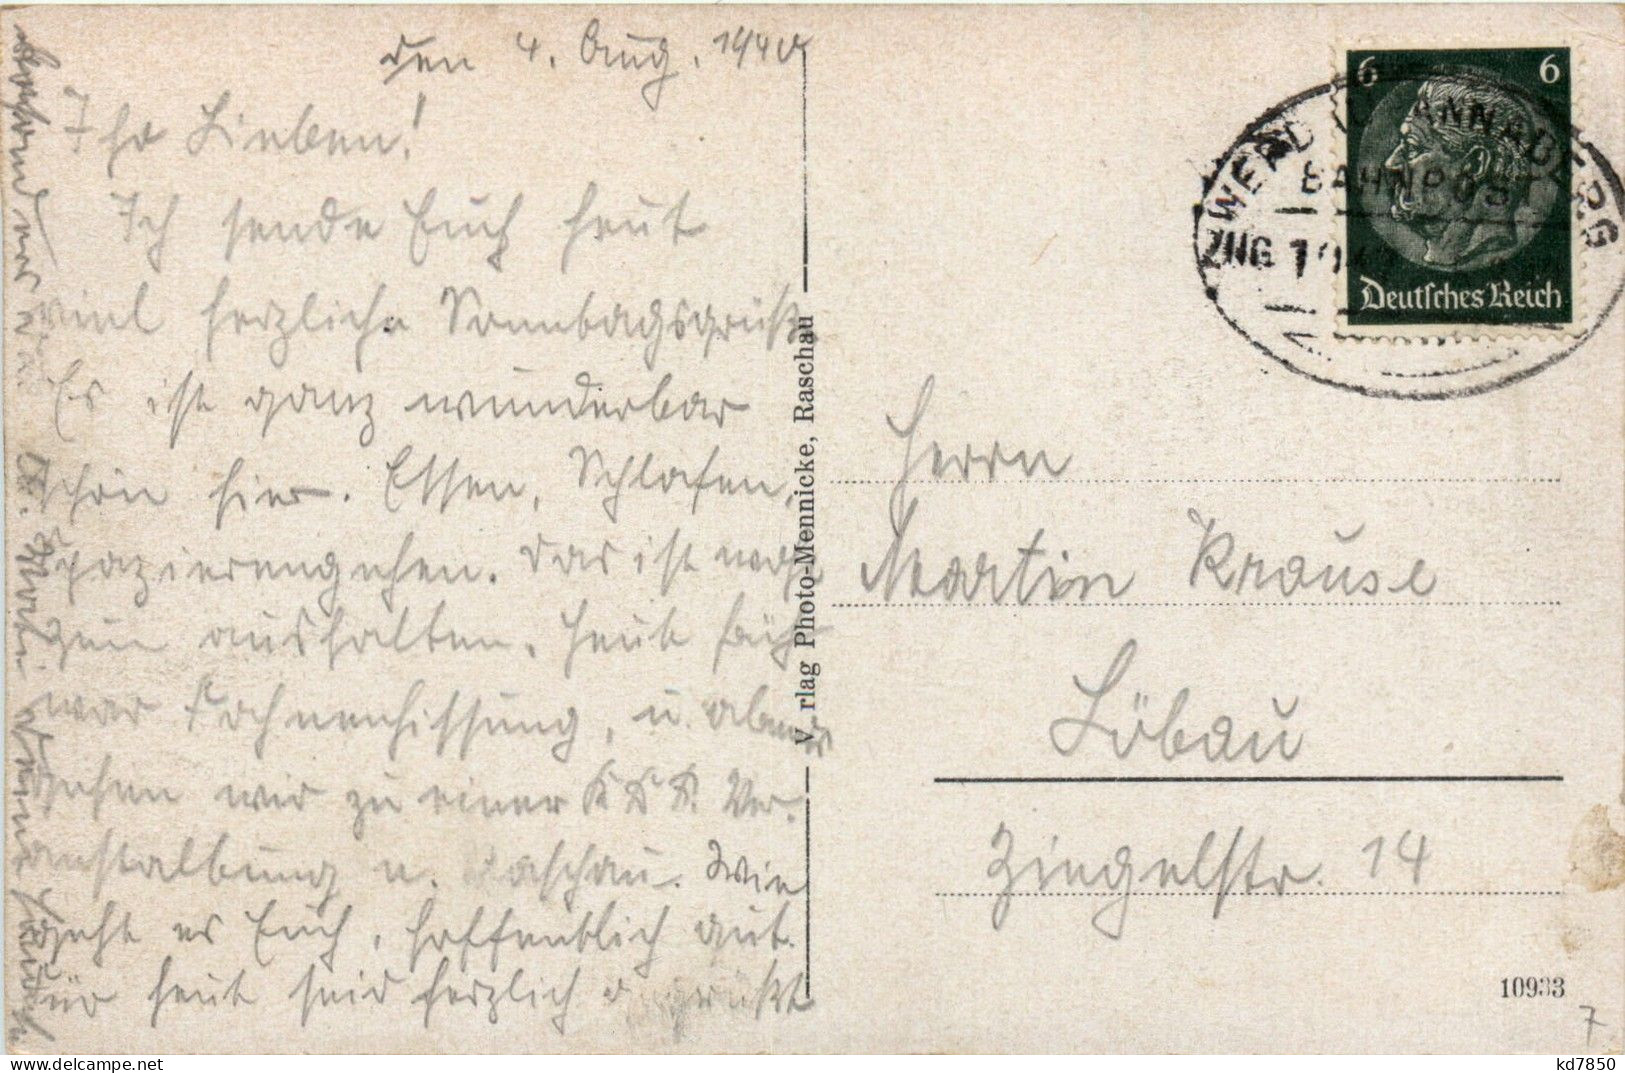 den 4. Aug. 1940
Ihr Lieben!
Ich sende Euch heut
viel herzliche Sonntagsgrüße
Es ist ganz wunderbar
schön hier. Essen, Schlafen,
Spazierengehen. Das ist wohl
zum aushalten. Heut früh
war Fahnenhissung, u. abends
gehen wir zu einer K.D.F. Ver-
anstaltung n. Raschau. Wie
geht es Euch, hoffentlich gut.
Für heut seid herzlich gegrüßt
besonders
V rlag Photo-Mennicke, Raschau
6 6
Deutsches Reich
WERDAU ANNABERG
BAHNPOST
ZUG
Herrn
Martin Krause
Löbau
Ziegelstr. 14
10933
7
kd7850